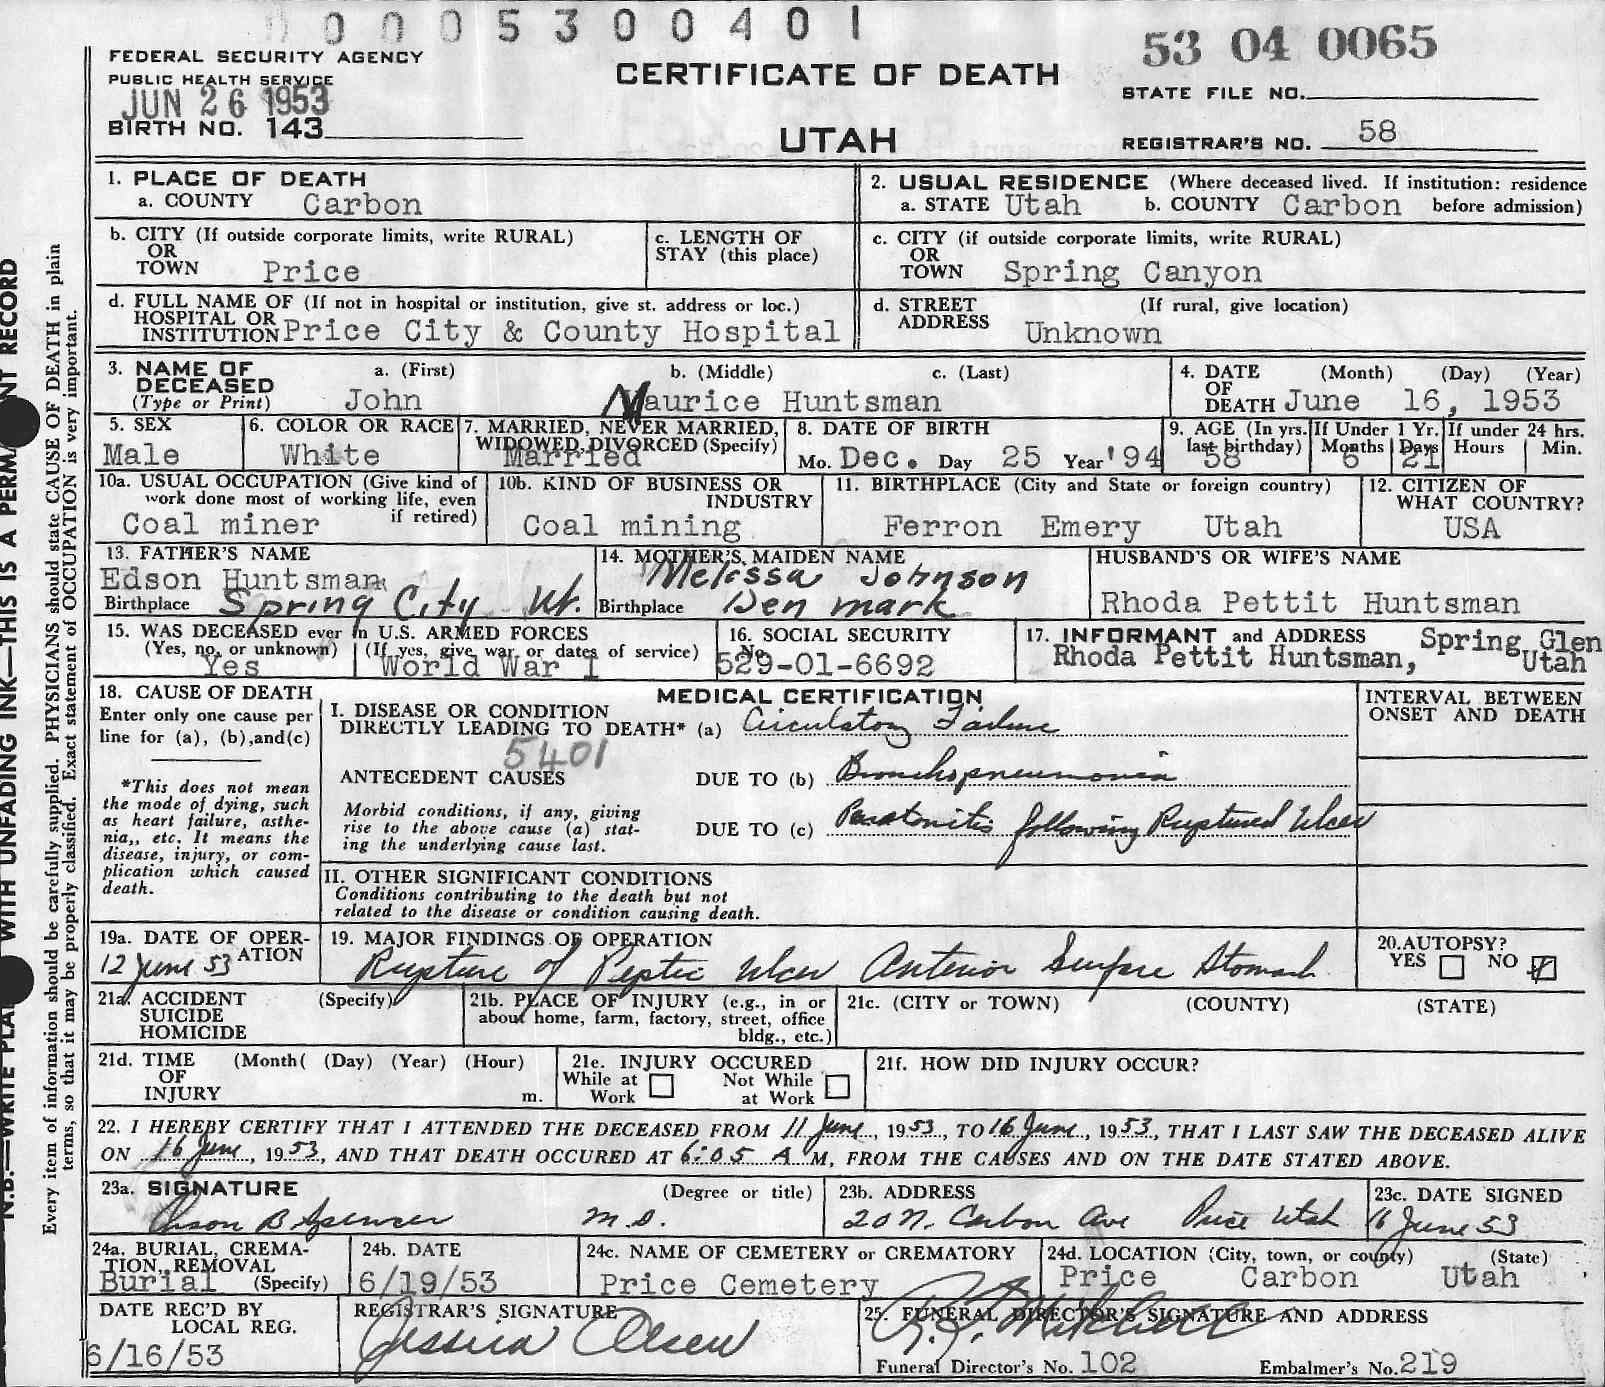 0 0 0 5 3 0 0 4 0 1
FEDERAL SECURITY AGENCY
PUBLIC HEALTH SERVICE
JUN 26 1953
BIRTH NO. 143
CERTIFICATE OF DEATH
UTAH
53 04 0065
STATE FILE NO.
REGISTRAR'S NO. 58
N.B.—WRITE PLAI WITH UNFADING INK—THIS IS A PERMA NT RECORD
Every item of information should be carefully supplied. PHYSICIANS should state CAUSE OF DEATH in plain
terms, so that it may be properly classified. Exact statement of OCCUPATION is very important.
1. PLACE OF DEATH
a. COUNTY Carbon
2. USUAL RESIDENCE (Where deceased lived. If institution: residence
a. STATE Utah b. COUNTY Carbon before admission)
b. CITY (If outside corporate limits, write RURAL)
OR
TOWN Price
c. LENGTH OF
STAY (this place)
c. CITY (if outside corporate limits, write RURAL)
OR
TOWN Spring Canyon
d. FULL NAME OF (If not in hospital or institution, give st. address or loc.)
HOSPITAL OR
INSTITUTION Price City & County Hospital
d. STREET (If rural, give location)
ADDRESS Unknown
3. NAME OF a. (First) b. (Middle) c. (Last)
DECEASED
(Type or Print) John Maurice Huntsman
4. DATE (Month) (Day) (Year)
OF
DEATH June 16, 1953
5. SEX
Male
6. COLOR OR RACE
White
7. MARRIED, NEVER MARRIED,
WIDOWED, DIVORCED (Specify)
Married
8. DATE OF BIRTH
Mo. Dec. Day 25 Year '94
9. AGE (In yrs.
last birthday)
58
If Under 1 Yr.
Months Days
6 21
If under 24 hrs.
Hours Min.
10a. USUAL OCCUPATION (Give kind of
work done most of working life, even
if retired)
Coal miner
10b. KIND OF BUSINESS OR
INDUSTRY
Coal mining
11. BIRTHPLACE (City and State or foreign country)
Ferron Emery Utah
12. CITIZEN OF
WHAT COUNTRY?
USA
13. FATHER'S NAME
Edson Huntsman
Birthplace Spring City Ut.
14. MOTHER'S MAIDEN NAME
Melissa Johnson
Birthplace Denmark
HUSBAND'S OR WIFE'S NAME
Rhoda Pettit Huntsman
15. WAS DECEASED ever in U.S. ARMED FORCES
(Yes, no, or unknown) (If yes, give war or dates of service)
Yes World War I
16. SOCIAL SECURITY
No.
529-01-6692
17. INFORMANT and ADDRESS Spring Glen
Rhoda Pettit Huntsman, Utah
18. CAUSE OF DEATH
Enter only one cause per
line for (a), (b),and(c)
*This does not mean
the mode of dying, such
as heart failure, asthe-
nia,, etc. It means the
disease, injury, or com-
plication which caused
death.
MEDICAL CERTIFICATION
I. DISEASE OR CONDITION
DIRECTLY LEADING TO DEATH* (a) Circulatory Failure
5401
ANTECEDENT CAUSES DUE TO (b) Bronchopneumonia
Morbid conditions, if any, giving
rise to the above cause (a) stat-
ing the underlying cause last.
DUE TO (c) Peratonitis following Ruptured Ulcer
INTERVAL BETWEEN
ONSET AND DEATH
II. OTHER SIGNIFICANT CONDITIONS
Conditions contributing to the death but not
related to the disease or condition causing death.
19a. DATE OF OPER-
ATION
12 June 53
19. MAJOR FINDINGS OF OPERATION
Rupture of Peptic Ulcer Anterior Surface Stomach
20. AUTOPSY?
YES NO
21a. ACCIDENT (Specify)
SUICIDE
HOMICIDE
21b. PLACE OF INJURY (e.g., in or
about home, farm, factory, street, office
bldg., etc.)
21c. (CITY or TOWN) (COUNTY) (STATE)
21d. TIME (Month( (Day) (Year) (Hour)
OF
INJURY m.
21e. INJURY OCCURED
While at Not While
Work at Work
21f. HOW DID INJURY OCCUR?
22. I HEREBY CERTIFY THAT I ATTENDED THE DECEASED FROM 11 June, 1953, TO 16 June, 1953, THAT I LAST SAW THE DECEASED ALIVE
ON 16 June, 1953, AND THAT DEATH OCCURED AT 6:05 A M, FROM THE CAUSES AND ON THE DATE STATED ABOVE.
23a. SIGNATURE (Degree or title)
Orson B Spencer M.D.
23b. ADDRESS
20 N. Carbon Ave Price Utah
23c. DATE SIGNED
16 June 53
24a. BURIAL, CREMA-
TION, REMOVAL
Burial (Specify)
24b. DATE
6/19/53
24c. NAME OF CEMETERY or CREMATORY
Price Cemetery
24d. LOCATION (City, town, or county) (State)
Price Carbon Utah
DATE REC'D BY
LOCAL REG.
6/16/53
REGISTRAR'S SIGNATURE
Jessica Olsen
25. FUNERAL DIRECTOR'S SIGNATURE AND ADDRESS
Mitchell
Funeral Director's No. 102 Embalmer's No. 219